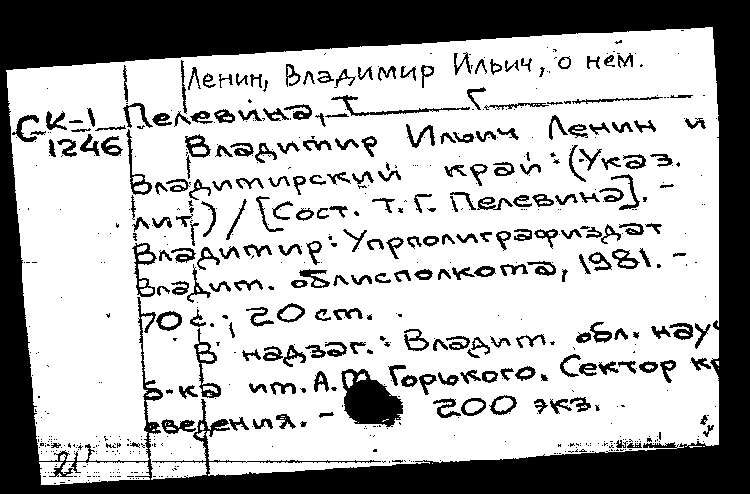 Ленин, Владимир Ильич, о нем.
СК-1 Пелевина, Т Г
1246 Владимир Ильич Ленин и
Владимирский край: (Указ.
лит.) / [Сост. Т. Г. Пелевина]. -
Владимир: Упрполиграфиздат
Владим. облисполкома, 1981. -
70 с.; 20 см.
В надзаг.: Владим. обл. науч
б-ка им. А.М. Горького. Сектор кр
еведения. - 200 экз.